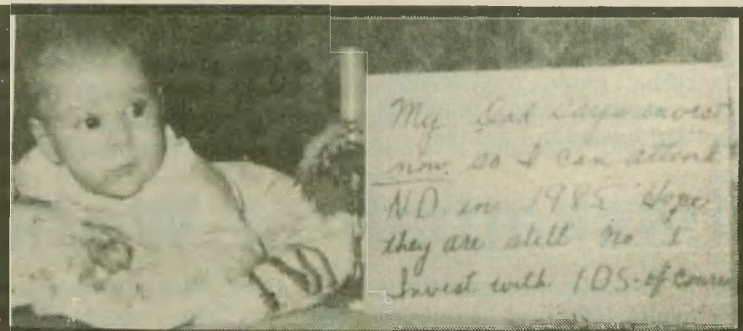 My Dad says invest
now so I can attend
ND in 1985 Hope
they are still No 1
Invest with IDS-of course